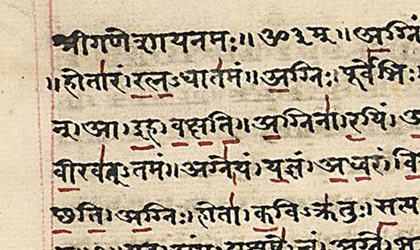 श्रीगणेशायनमः॥ॐ३म्॥अग्नि
॥होतारं।रत्नऽधातमं॥अग्निः।पूर्वेभिः
न्।आ।इह।वक्षति॥अग्निना।रयिं।अ
वीरवत्ऽतमं॥अग्ने।यं।यज्ञं।अध्वरं।वि
छति॥अग्निः।होता।कविऽक्रतुः।सत्य